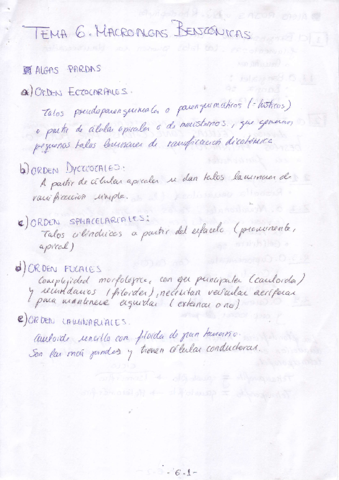 TEMA 6. MACROALGAS BENTÓNICAS
ALGAS PARDAS
a) ORDEN ECTOCARPALES.
Talos pseudoparenquimales o parenquimáticos (-hísticos)
a partir de células apicales o de meristemos, que generan
pequeños talos laminares de ramificación dicotómica
b) ORDEN DYCTIOCALES.
A partir de células apicales se dan talos laminares de
ramificación simple.
c) ORDEN SPHACELARIALES:
Talos cilíndricos a partir del esfacelo (prominente,
apical)
d) ORDEN FUCALES
Complejidad morfológica, con eje principales (cauloide)
y secundarios (filoides), necesitan vesículas aeríferas
para mantenerse erguidas (externas o no)
e) ORDEN LAMINARIALES.
Cauloide sencillo con filoide de gran tamaño.
Son las más grandes y tienen células conductoras.
-6.1-